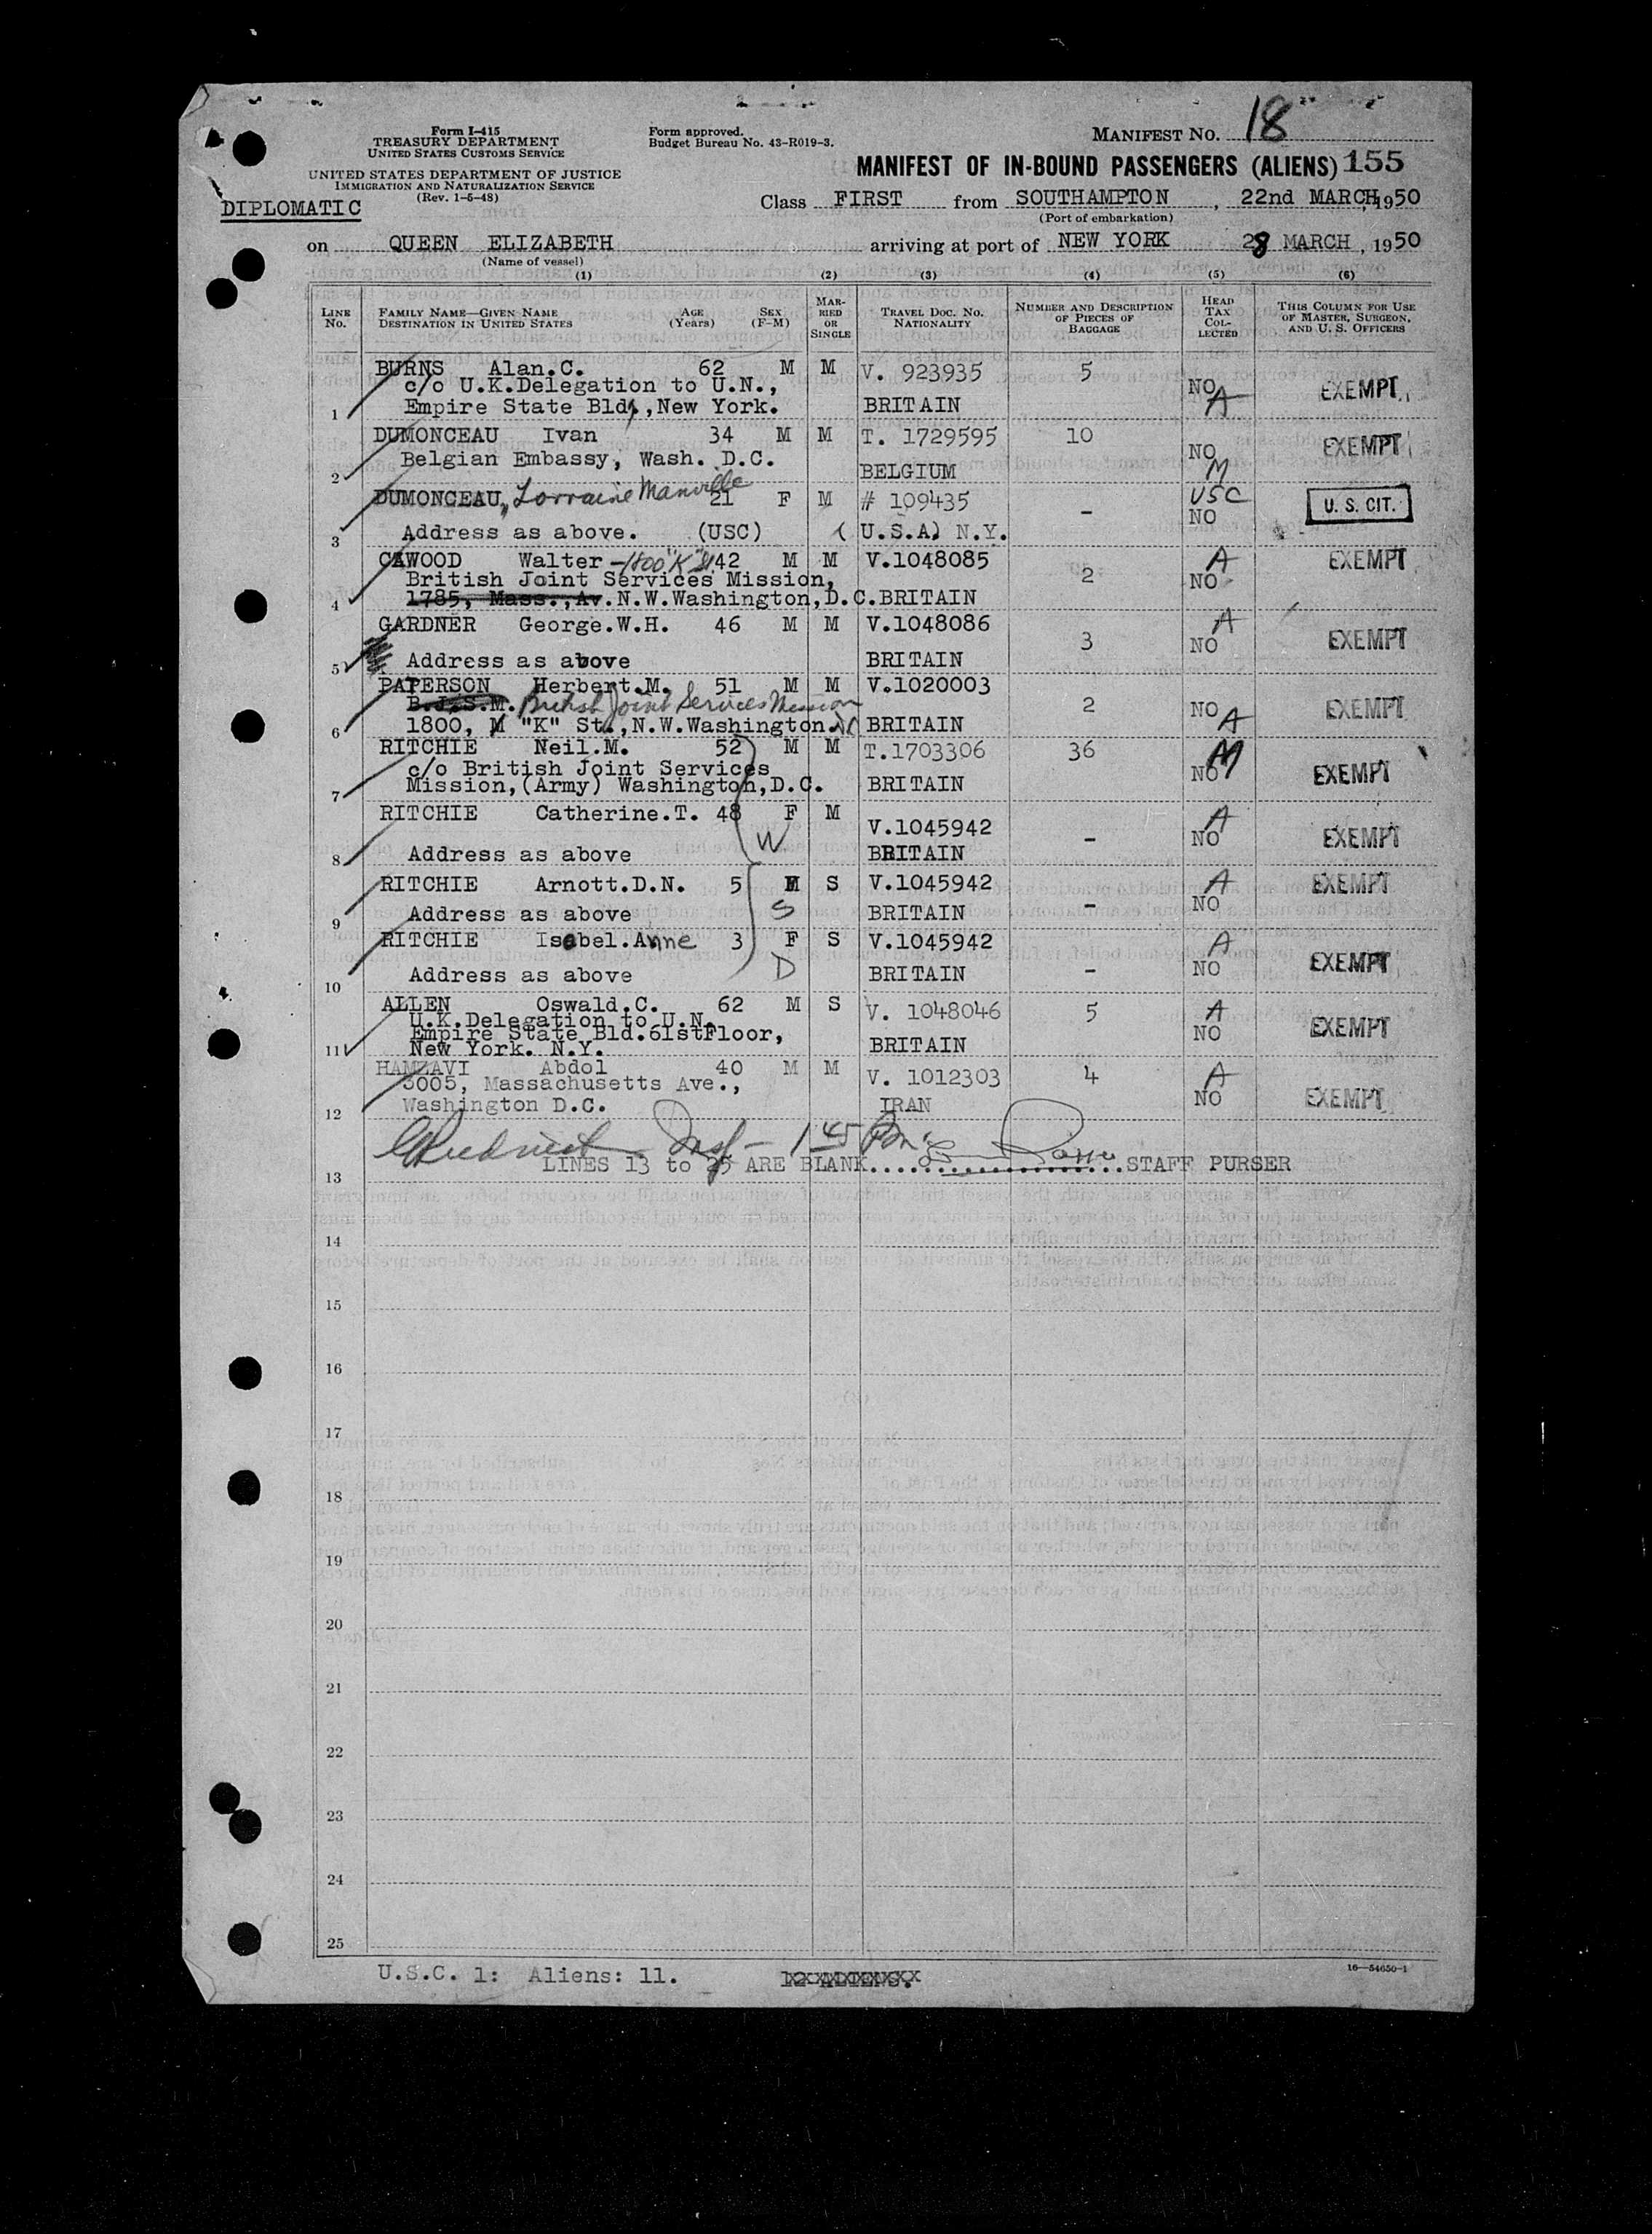 Form I-415
TREASURY DEPARTMENT
UNITED STATES CUSTOMS SERVICE
UNITED STATES DEPARTMENT OF JUSTICE
IMMIGRATION AND NATURALIZATION SERVICE
(Rev. 1-5-48)
Form approved.
Budget Bureau No. 43-R019-3.
MANIFEST NO. 18
MANIFEST OF IN-BOUND PASSENGERS (ALIENS) 155
DIPLOMATIC
Class FIRST from SOUTHAMPTON, 22nd MARCH, 1950
(Port of embarkation)
on QUEEN ELIZABETH arriving at port of NEW YORK 28 MARCH, 1950
(Name of vessel)
(1) (2) (3) (4) (5) (6)
LINE No. FAMILY NAME—GIVEN NAME DESTINATION IN UNITED STATES AGE (Years) SEX (F-M) MARRIED OR SINGLE TRAVEL DOC. NO. NATIONALITY NUMBER AND DESCRIPTION OF PIECES OF BAGGAGE HEAD TAX COLLECTED THIS COLUMN FOR USE OF MASTER, SURGEON, AND U. S. OFFICERS
BURNS Alan.C. 62 M M V. 923935 5 NO A EXEMPT
c/o U.K.Delegation to U.N.,
1 Empire State Bld,,New York. BRITAIN
DUMONCEAU Ivan 34 M M T. 1729595 10 NO M EXEMPT
2 Belgian Embassy, Wash. D.C. BELGIUM
DUMONCEAU, Lorraine Manville 21 F M # 109435 - USC NO U. S. CIT.
3 Address as above. (USC) (U.S.A) N.Y.
CAWOOD Walter - 1800 "K" St 42 M M V.1048085 2 A NO EXEMPT
British Joint Services Mission,
4 1785, Mass.,Av.N.W.Washington,D.C. BRITAIN
GARDNER George.W.H. 46 M M V.1048086 3 A NO EXEMPT
5 Address as above BRITAIN
PATERSON Herbert.M. 51 M M V.1020003 2 NO A EXEMPT
B.J.S.M. British Joint Services Mission
6 1800, "K" St.,N.W.Washington DC BRITAIN
RITCHIE Neil.M. 52 M M T.1703306 36 NO M EXEMPT
c/o British Joint Services
7 Mission,(Army) Washington,D.C. BRITAIN
RITCHIE Catherine.T. 48 F M V.1045942 - A NO EXEMPT
8 Address as above W BRITAIN
RITCHIE Arnott.D.N. 5 M S V.1045942 - A NO EXEMPT
9 Address as above S BRITAIN
RITCHIE Isabel.Anne 3 F S V.1045942 - A NO EXEMPT
10 Address as above D BRITAIN
ALLEN Oswald.C. 62 M S V. 1048046 5 A NO EXEMPT
U.K.Delegation to U.N.
Empire State Bld.61stFloor,
11 New York. N.Y. BRITAIN
HAMZAVI Abdol 40 M M V. 1012303 4 A NO EXEMPT
3005, Massachusetts Ave.,
12 Washington D.C. IRAN
Insp - 1 45 Pm.
13 LINES 13 to 25 ARE BLANK....................STAFF PURSER
14
15
16
17
18
19
20
21
22
23
24
25
U.S.C. 1: Aliens: 11.
16—54650-1